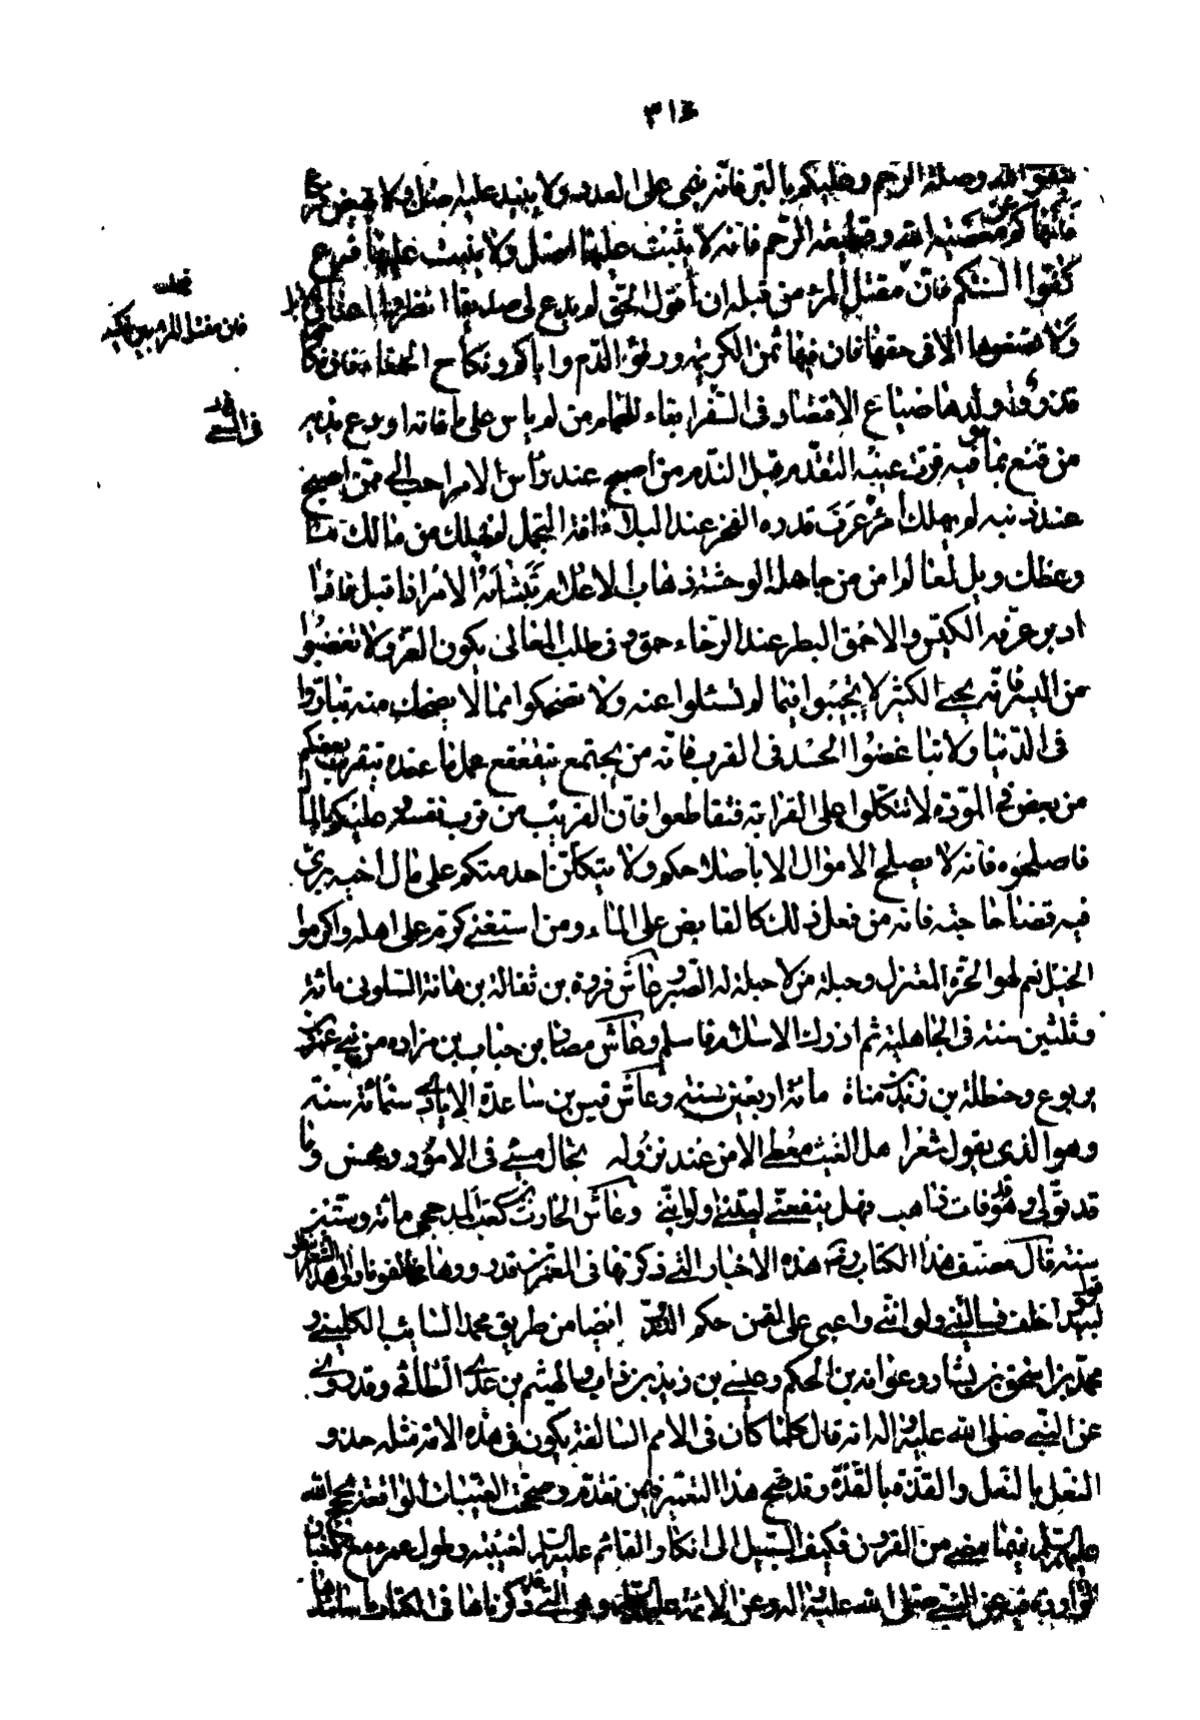 ٣١٤
بتقوى الله وصلة الرحم وعليكم بالبر فانه ينمى على العدد ولا يبيد عليه اصل ولا
فانها كم عن معصية الله وقطيعة الرحم فانه لا يثبت عليها اصل ولا ينبت عليها فرع
كفوا السنتكم فان مقتل المرء من قبله ان قول الحق لم يدع لى صديقا انظروا اعناق الابل
ولا تضعوها الا فى حقها فان فيها ثمن الكريمة ورقوء الدم واياكم ونكاح الحمقاء فان نكا
قذر وولدها ضياع الاقتصاد فى السفر ابقاء للجمام من لم ياس على ما فاته اودع بدنه
من قنع بما هو فيه قرت عينه التقدم قبل الندم من اصبح عند رأس الامر احب الى ممن اصبح
عند ذنبه لم يهلك امرؤ عرف قدره العجز عند البلاء افة التجمل لم يهلك من مالك ما
وعظك ويل لعالم امن من جاهله الوحشة ذهاب الاعلام يتشابه الامر اذا اقبل فاذا
ادبر عرفه الكيس والاحمق البطر عند الرخاء حمق وفى طلب المعالى يكون العز ولا تغضبوا
من اليسير فانه يجنى الكثير لا تجيبوا فيما لم تسئلوا عنه ولا تضحكوا مما لا يضحك منه تباروا
فى الدنيا ولا تباغضوا الحسد فى القرب فانه من يجتمع يتقعقع عمده يتقرب بعضكم
من بعض فى المودة لا تتكلوا على القرابة فتقاطعوا فان القريب من قرب نفسه وعليكم بالمال
فاصلحوه فانه لا يصلح الاموال الا باصلاحكم ولا يتكلن احد منكم على مال اخيه يرى
فيه قضا حاجته فانه من فعل ذلك كالقابض على الماء ومن استغنى كرم على اهله واكرموا
الخيل نعم لهو الحرة المغزل وحيلة من لا حيلة له الصبر وعاش فروة بن نفاثة السلولى مائة
وثلثين سنة فى الجاهلية ثم ادرك الاسلام فاسلم وعاش مصاد بن جناب بن مراره من بنى عمرو بن
يربوع وحنظلة بن زيد مناة مائة اربعين سنة وعاش قيس بن ساعدة الايادى ستمائة سنة
وهو الذى يقول شعرا هل الغيث معطى الامن عند نزوله بحال مسئ فى الامور ومحسن وما
قد تولى وهو قد فات ذاهب فهل ينفعنى ليتنى ولو اننى وعاش الحارث بن كعب المدحجى مائة وستين
سنة قال مصنف هذا الكتاب ره هذه الاخبار التى ذكرتها فى المعمرين قد رووها مخالفونا
واخلف قسا ليتنى ولو اننى واعيى على لقمن حكم التدبر ايضا من طريق محمد السائب الكلبى و
محمد بن اسحق بن بشار وعوانة بن الحكم وعيسى بن زيد بن اب والهيثم بن عدى الطائى وقد روى
عن النبى صلى الله عليه واله انه قال كلما كان فى الامم السالفة يكون فى هذه الامة مثله حذو
النعل بالنعل والقذة بالقذة وقد صح هذا التعمير فيمن تقدم وصحت الغيبات الواقعة بحجج الله
عليهم السلم فيما مضى من القرون فكيف السبيل الى انكار القائم عليه السلم لغيبته وطول عمره مع
الواردة فيه عن النبى صلى الله عليه واله وعن الائمة عليهم السلم وهى التى قد ذكرناها فى الكتاب
فان مقتل المرء بين فكيه
فى السفر